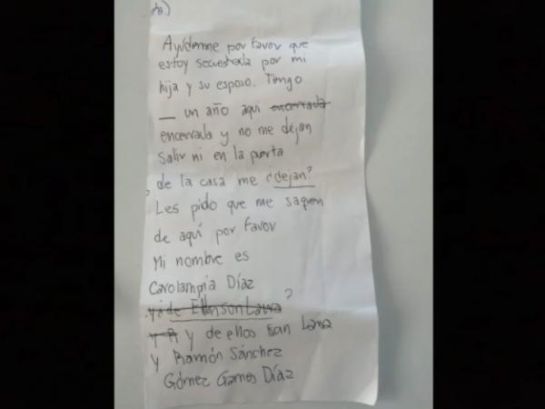 Ayúdenme por favor que
estoy secuestrada por mi
hija y su esposo. Tengo
— un año aqui encerrada
encerrada y no me dejan
Salir ni en la puerta
de la casa me ¿dejan?
Les pido que me saquen
de aquí por favor
Mi nombre es
Carolampia Díaz
?
y de ellos son Lana
y Ramón Sánchez
Gómez Games Díaz